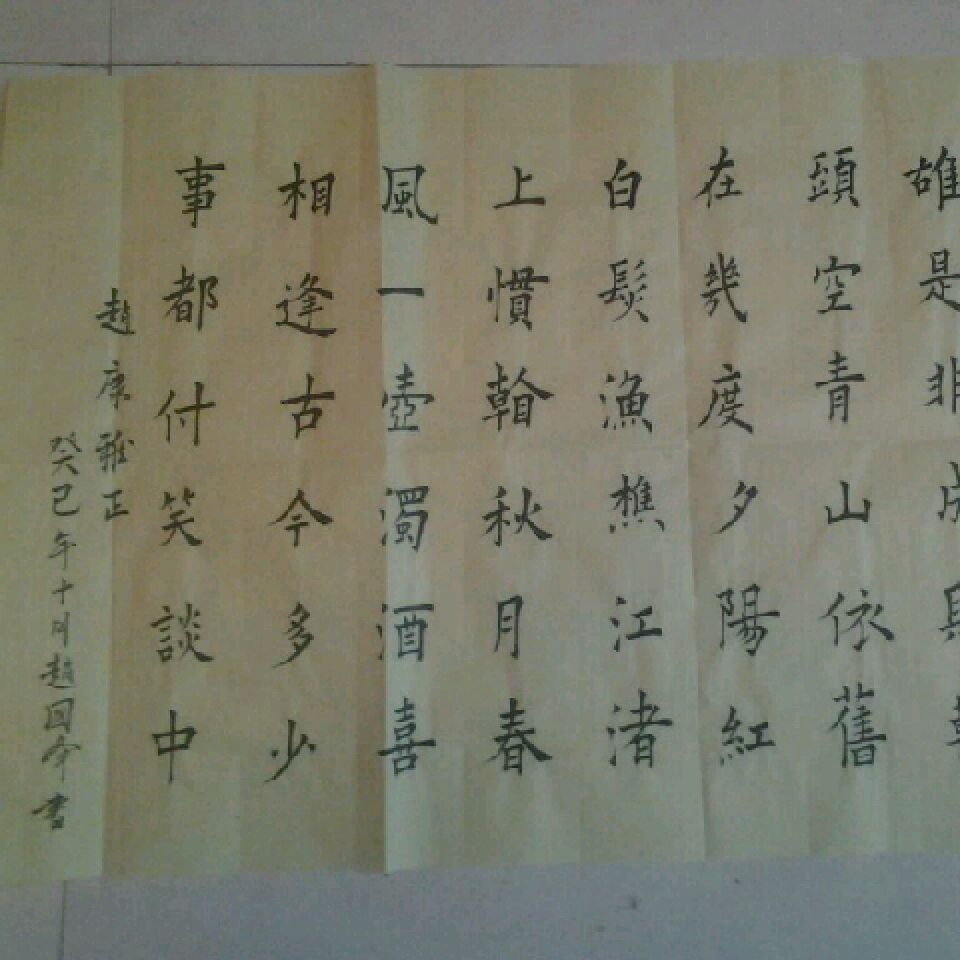 雄是非成
頭空青山依舊
在幾度夕陽紅
白髮漁樵江渚
上慣看秋月春
風一壺濁酒喜
相逢古今多少
事都付笑談中
趙康雅正
癸巳年十月趙国令书